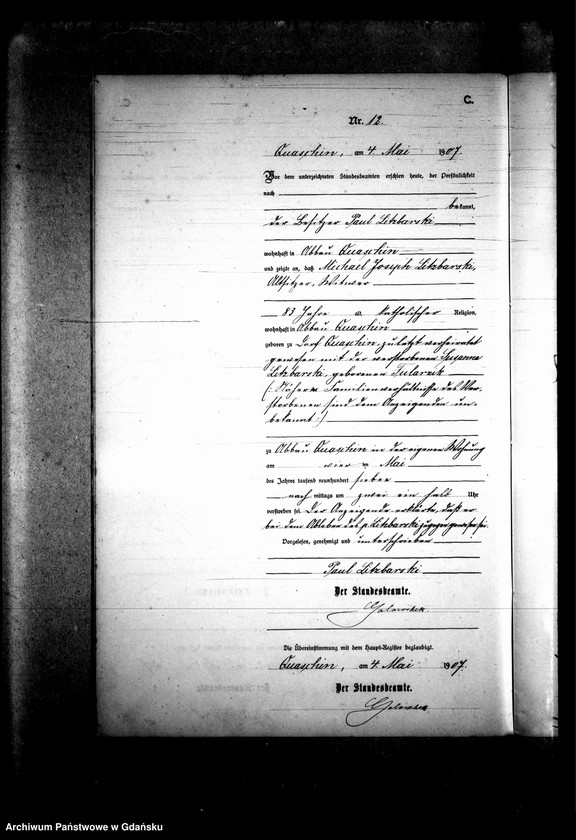 C.
Nr. 12.
Quaschin, am 4. Mai 1907.
Vor dem unterzeichneten Standesbeamten erschien heute, der Persönlichkeit
nach
bekannt,
der Besitzer Paul Litzbarski
wohnhaft in Abbau Quaschin
und zeigte an, daß Michael Joseph Litzbarski,
Altsitzer, Witwer
83 Jahre alt, katholischer Religion,
wohnhaft in Abbau Quaschin
geboren zu Dorf Quaschin, zuletzt verheiratet
gewesen mit der verstorbenen Susanna
Litzbarski, geborenen
(: Nähere Familienverhältnisse des Ver-
storbenen sind dem Anzeigenden un-
bekannt :)
zu Abbau Quaschin in der eigenen Wohnung
am vier ten Mai
des Jahres tausend neunhundert sieben
nach mittags um zwei ein halb Uhr
verstorben sei. Der Anzeigende erklärte, daß er
bei dem Ableben des p. Litzbarski zugegen gewesen sei.
Vorgelesen, genehmigt und unterschrieben
Paul Litzbarski
Der Standesbeamte.
Die Übereinstimmung mit dem Haupt-Register beglaubigt.
Quaschin, am 4. Mai 1907.
Der Standesbeamte.
Archiwum Państwowe w Gdańsku